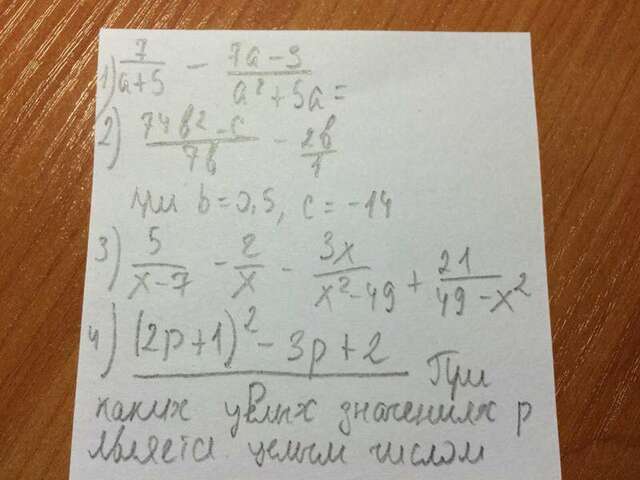 1) 7/(a+5) - (7a-3)/(a²+5a) =
2) (74b²-c)/(7b) - 2b/1
при b=0,5, c=-14
3) 5/(x-7) - 2/x - 3x/(x²-49) + 21/(49-x²)
4) (2p+1)² - 3p+2 При
каких целых значениях p
является целым числом